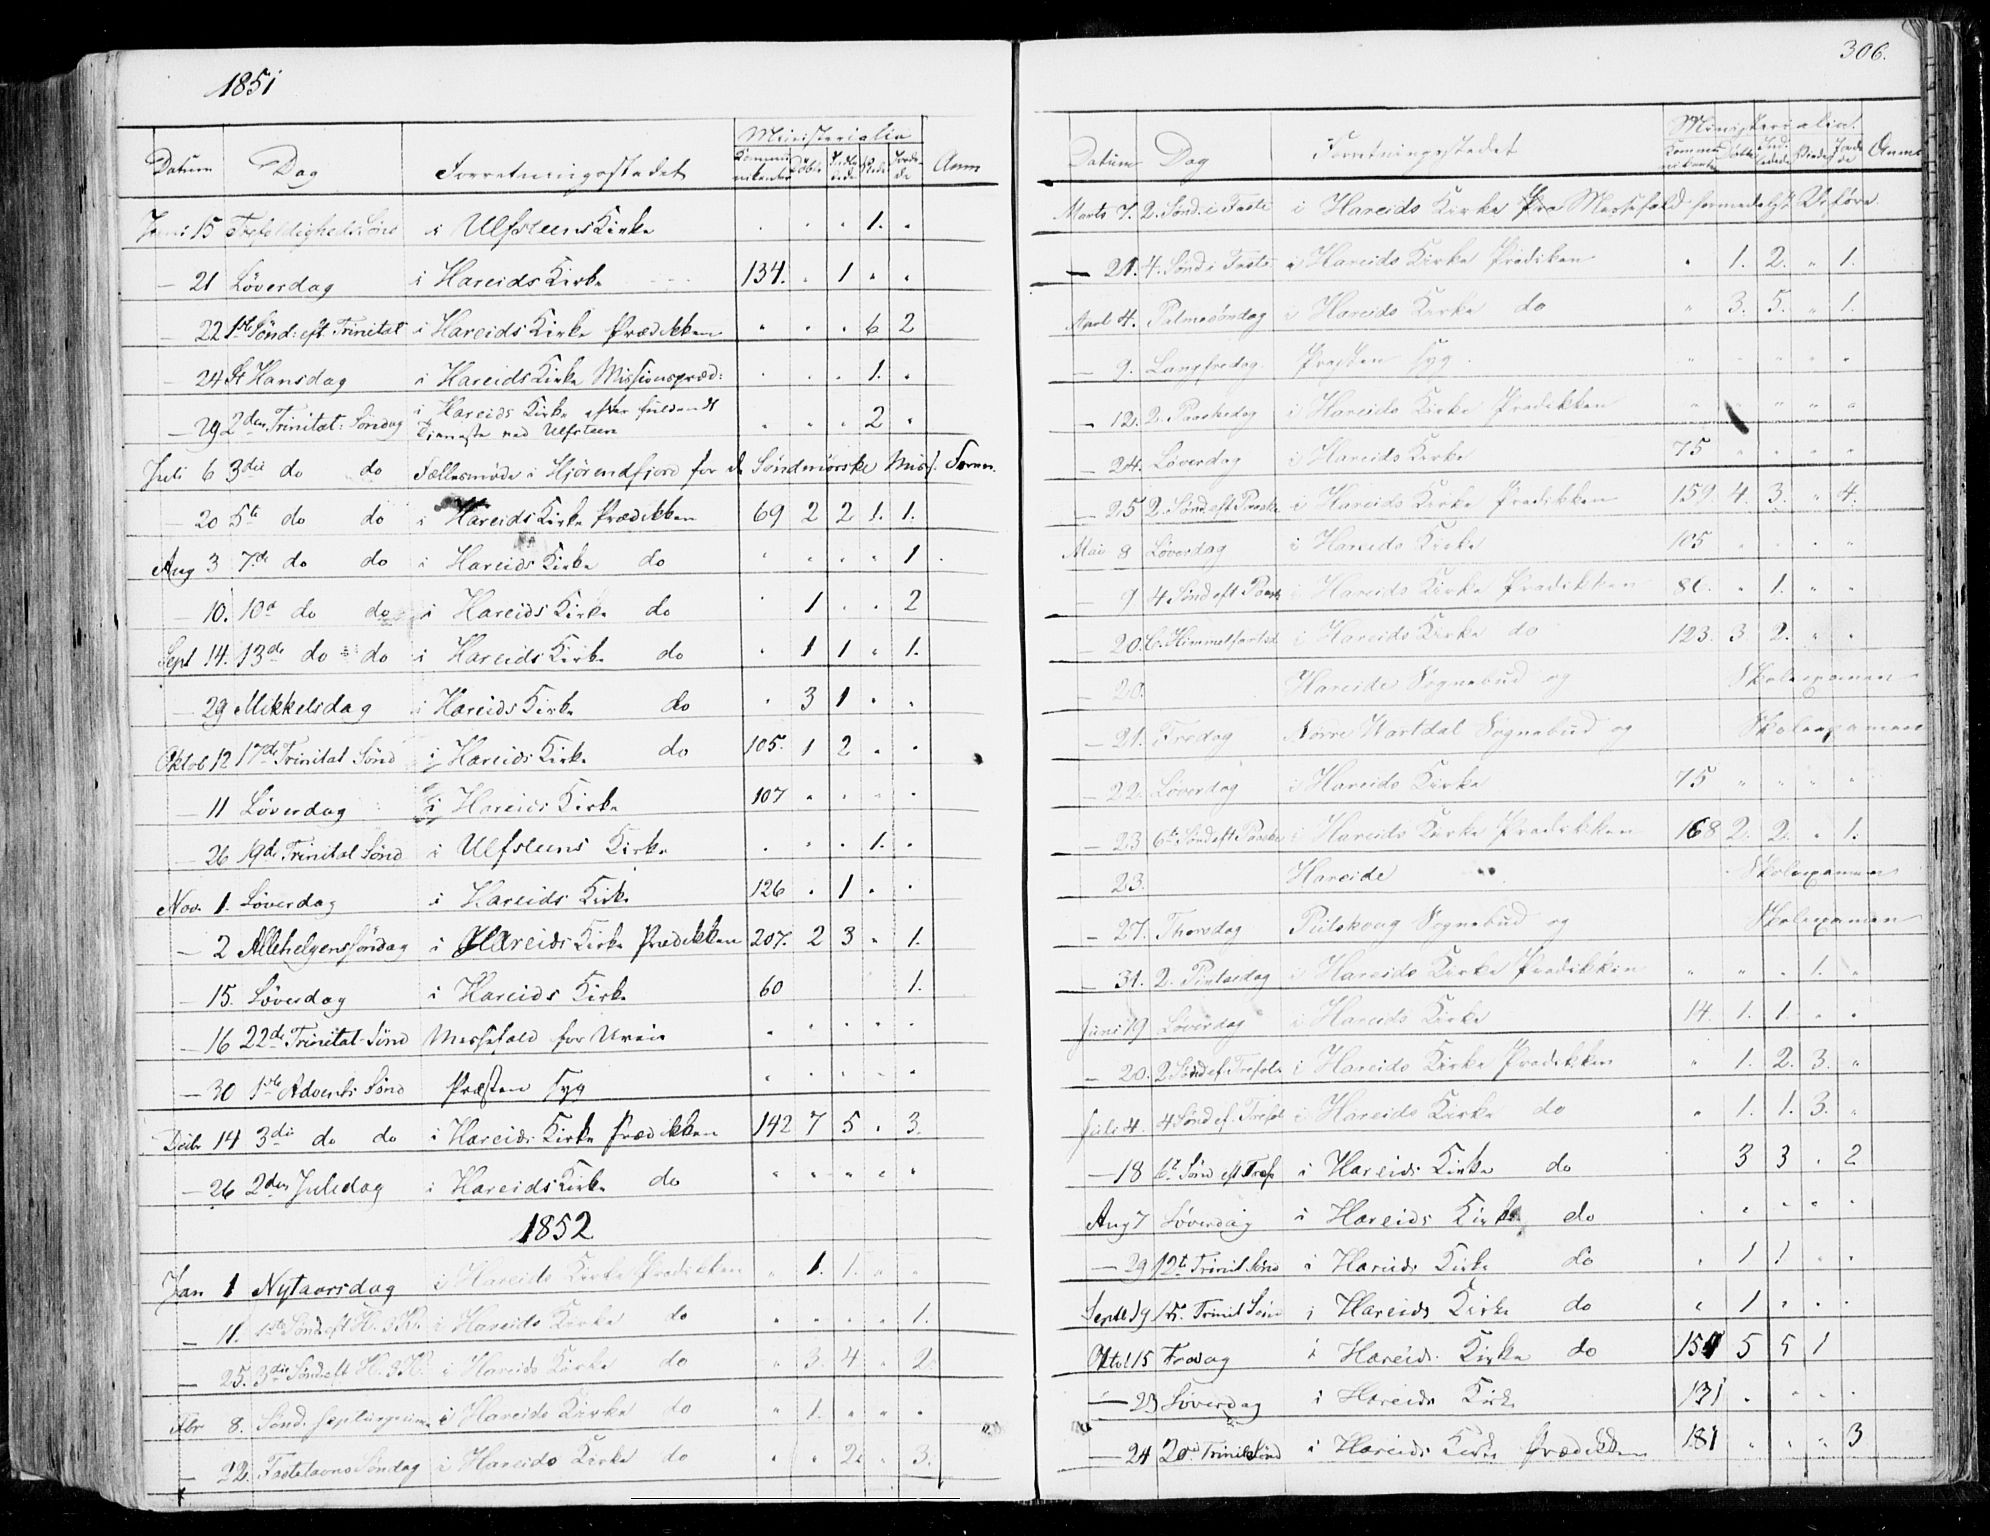 1851
Datum Dag Forretningsstedet Ministerialia Anm
Kommunikanter Døbte Indledede Viede Jordede
Juni 15 Trefoldigheds Sønd i Ulfsteens Kirke " " " 1. "
— 21 Løverdag i Hareids Kirke 134. " 1 " "
— 22 1ste Sønd: eft. Trinitat i Hareids Kirke Prædikken " " " 6 2
— 24 St Hansdag i Hareids Kirke Missionspræd: " " " 1. "
— 29 2den Trinitat: Søndag i Hareids Kirke efter fuldendt
Tjeneste ved Ulfsteen " " " 2 "
Juli 6 3die do do Fællesmøde i Hjörendfjord for de Søndmørske Miss. Foren.
— 20 5te do do i Hareids Kirke Prædikken 69 2 2 1. 1.
Aug 3 7de do do i Hareids Kirke do " " " " 1
— 10. 10de do do i Hareids Kirke do " 1 " " 2
Sept 14. 13de do do i Hareids Kirke do " 1 1 " 1.
— 29 Mikkelsdag i Hareids Kirke do " 3 1 " "
Oktob 12 17de Trinitat Sønd i Hareids Kirke do 105. 1 2 " "
— 11 Løverdag i Hareids Kirke 107 " " " "
— 26 19de Trinitat Sønd i Ulfsteens Kirke " " " 1. "
Nov. 1. Løverdag i Hareids Kirke 126 " 1 " "
— 2 Allehelgens Søndag i Hareids Kirke Prædikken 207. 2 3 " 1.
— 15. Løverdag i Hareids Kirke 60 1.
— 16 22de Trinitat Sønd Messefald for Uveir " " " " "
— 30 1ste Advents Sønd Præsten syg " " " " "
Decbr 14 3die do do i Hareids Kirke Prædikken 142 7 5 " 3.
— 26 2den Juledag i Hareids Kirke do " " " " "
1852
Jan 1 Nytaarsdag i Hareids Kirke Prædikken " 1. 1. " "
— 11. 1ste Sønd. eft H. 3 K. i Hareids Kirke do " " " " 1.
— 25. 3die Sønd eft H. 3 K. i Hareids Kirke do " 3. 4 " 2
Fbr 8. Sønd. Septuagesima i Hareids Kirke do " 1. " " "
— 22. Fastelavns Søndag i Hareids Kirke do " " 2. " 3.
306.
Datum Dag Forretningsstedet Ministerialia. Anm
Kommunikanter Døbte Indledede Viede Jordede
Marts 7. 2. Sønd. i Faste i Hareids Kirke Messefald formedelst Uføre.
— 21. 4. Sønd i Faste i Hareids Kirke Prædiken " 1. 2. " 1.
April 4. Palmesøndag i Hareids Kirke do " 3. 5. " 1.
— 9. Langfredag Præsten syg. " " " " "
— 12. 2. Paaskedag i Hareids Kirke Prædikken " " " " "
— 24. Løverdag i Hareids Kirke 75 " " " "
— 25 2. Sønd eft Paaske i Hareids Kirke Prædikken 159. 4. 3. " 4.
Mai 8 Løverdag i Hareids Kirke 105 " " " "
— 9 4 Sønd eft Paaske i Hareids Kirke Prædikken 86. " 1. " "
— 20. C. Himmelfartsd i Hareids Kirke do 123. 3. 2. " "
— 20. Hareide Sognebud og Skoleexamen
— 21. Fredag Nørre Hartdal Sognebud og Skoleexamen
— 22. Løverdag i Hareids Kirke 75 " " " "
— 23 6te Sønd eft Paaske i Hareids Kirke Prædikken 168 2. 2. " 1.
— 23. Hareide Skoleexamen
— 27. Thorsdag Pilskoug Sognebud og Skoleexamen
— 31. 2. Pintsedag i Hareids Kirke Prædikken " " " 1. "
Juni 19 Løverdag i Hareids Kirke 14. 1. 1. " "
— 20. 2 Sønd ef. Trefol. i Hareids Kirke Prædikken " 1. 2. 3. "
Juli 4. 4 Sønd ef. Trefol i Hareids Kirke do " 1. 1. 3. "
— 18 6te Sønd eft Tref i Hareids Kirke do 3 3 " 2
Aug 7 Løverdag i Hareids Kirke do " " " " "
— 29 12te Trinit Sønd i Hareids Kirke do " 1 1 " "
Septb 19 15. Trinit Sønd i Hareids Kirke do " 1 " " "
Oktol 15 Fredag i Hareids Kirke do 5 5 1
— 23 Løverdag i Hareids Kirke 131 " " " "
— 24 20de Trinit Sønd i Hareids Kirke Prædikken 181 " " " 3